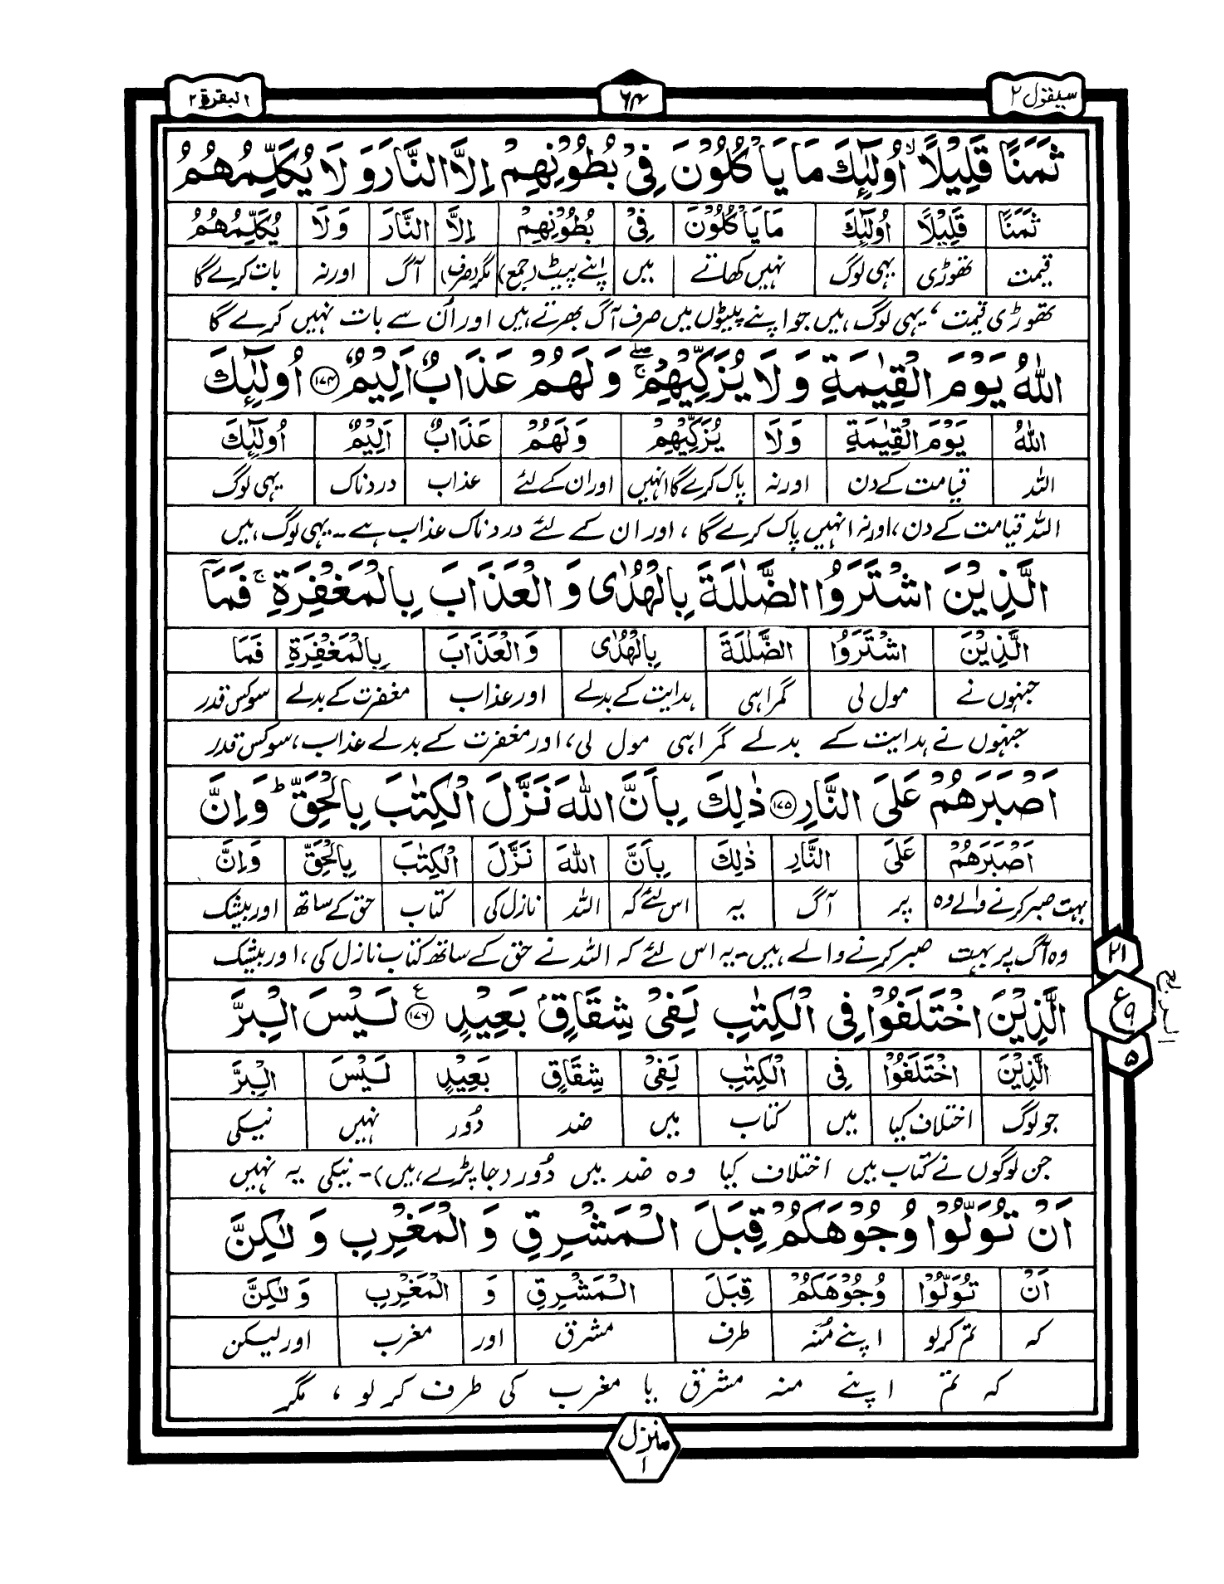 سیقول ۲
۶۴
البقرة ۲
ثَمَنًا قَلِيْلًا ۙ اُولٰٓئِكَ مَا يَاْكُلُوْنَ فِيْ بُطُوْنِهِمْ اِلَّا النَّارَ وَ لَا يُكَلِّمُهُمُ
ثَمَنًا قَلِيْلًا اُولٰٓئِكَ مَا يَاْكُلُوْنَ فِيْ بُطُوْنِهِمْ اِلَّا النَّارَ وَ لَا يُكَلِّمُهُمُ
قیمت تھوڑی یہی لوگ نہیں کھاتے میں اپنے پیٹ (جمع) مگر (صرف) آگ اور نہ بات کرے گا
تھوڑی قیمت ، یہی لوگ ہیں جو اپنے پیٹوں میں صرف آگ بھرتے ہیں اور اُن سے بات نہیں کرے گا
اللّٰهُ يَوْمَ الْقِيٰمَةِ وَ لَا يُزَكِّيْهِمْ ۖۚ وَ لَهُمْ عَذَابٌ اَلِيْمٌ ﴿۱۷۴﴾ اُولٰٓئِكَ
اللّٰهُ يَوْمَ الْقِيٰمَةِ وَ لَا يُزَكِّيْهِمْ وَ لَهُمْ عَذَابٌ اَلِيْمٌ اُولٰٓئِكَ
اللہ قیامت کے دن اور نہ پاک کرے گا انہیں اور ان کے لئے عذاب دردناک یہی لوگ
اللہ قیامت کے دن ، اور نہ انہیں پاک کرے گا ، اور ان کے لئے دردناک عذاب ہے ۔ یہی لوگ ہیں
الَّذِيْنَ اشْتَرَوُا الضَّلٰلَةَ بِالْهُدٰى وَ الْعَذَابَ بِالْمَغْفِرَةِ ۚ فَمَاۤ
الَّذِيْنَ اشْتَرَوُا الضَّلٰلَةَ بِالْهُدٰى وَ الْعَذَابَ بِالْمَغْفِرَةِ فَمَا
جنہوں نے مول لی گمراہی ہدایت کے بدلے اور عذاب مغفرت کے بدلے سو کس قدر
جنہوں نے ہدایت کے بدلے گمراہی مول لی ، اور مغفرت کے بدلے عذاب ، سو کس قدر
اَصْبَرَهُمْ عَلَى النَّارِ ﴿۱۷۵﴾ ذٰلِكَ بِاَنَّ اللّٰهَ نَزَّلَ الْكِتٰبَ بِالْحَقِّ ؕ وَ اِنَّ
اَصْبَرَهُمْ عَلَى النَّارِ ذٰلِكَ بِاَنَّ اللّٰهَ نَزَّلَ الْكِتٰبَ بِالْحَقِّ وَ اِنَّ
بہت صبر کرنے والے وہ پر آگ یہ اس لئے کہ اللہ نازل کی کتاب حق کے ساتھ اور بیشک
وہ آگ پر بہت صبر کرنے والے ہیں ۔ یہ اس لئے کہ اللہ نے حق کے ساتھ کتاب نازل کی ، اور بیشک
الَّذِيْنَ اخْتَلَفُوْا فِي الْكِتٰبِ لَفِيْ شِقَاقٍۭ بَعِيْدٍ ﴿۱۷۶﴾ ع لَيْسَ الْبِرَّ
الَّذِيْنَ اخْتَلَفُوْا فِي الْكِتٰبِ لَفِيْ شِقَاقٍ بَعِيْدٍ لَيْسَ الْبِرَّ
جو لوگ اختلاف کیا میں کتاب میں ضد دُور نہیں نیکی
جن لوگوں نے کتاب میں اختلاف کیا وہ ضد میں دُور (جا پڑے ہیں) ۔ نیکی یہ نہیں
اَنْ تُوَلُّوْا وُجُوْهَكُمْ قِبَلَ الْمَشْرِقِ وَ الْمَغْرِبِ وَ لٰكِنَّ
اَنْ تُوَلُّوْا وُجُوْهَكُمْ قِبَلَ الْمَشْرِقِ وَ الْمَغْرِبِ وَ لٰكِنَّ
کہ تم کر لو اپنے مُنہ طرف مشرق اور مغرب اور لیکن
کہ تم اپنے منہ مشرق یا مغرب کی طرف کر لو ، مگر
۲۱
ع ۹
۵
الربع
منزل ۱